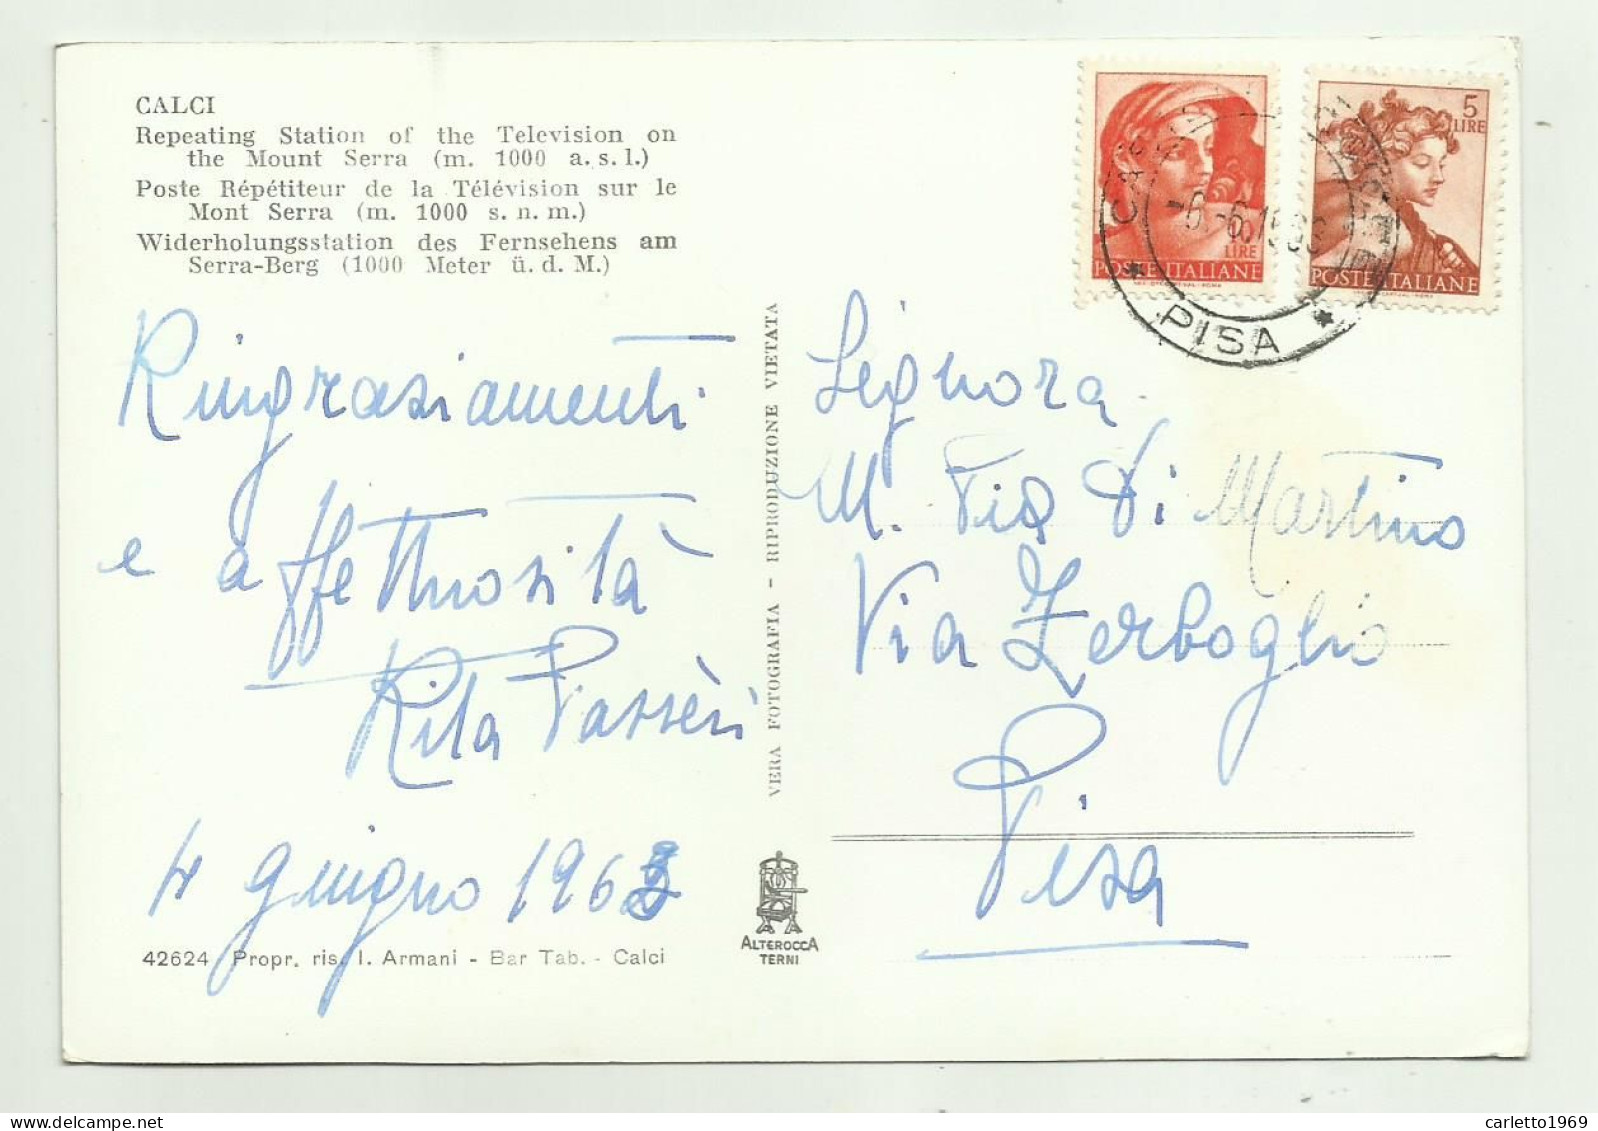 CALCI
Repeating Station of the Television on
the Mount Serra (m. 1000 a. s. l.)
Poste Répétiteur de la Télévision sur le
Mont Serra (m. 1000 s. n. m.)
Widerholungsstation des Fernsehens am
Serra-Berg (1000 Meter ü. d. M.)
Ringraziamenti
e affettuosità
Rita Passèri
4 giugno 1963
42624 Propr. ris. I. Armani - Bar Tab. - Calci
VERA FOTOGRAFIA - RIPRODUZIONE VIETATA
ALTEROCCA
TERNI
10
LIRE
POSTE ITALIANE
5
LIRE
POSTE ITALIANE
PISA
Signora
M. Pia Di Martino
Via Zerboglio
Pisa
carletto1969